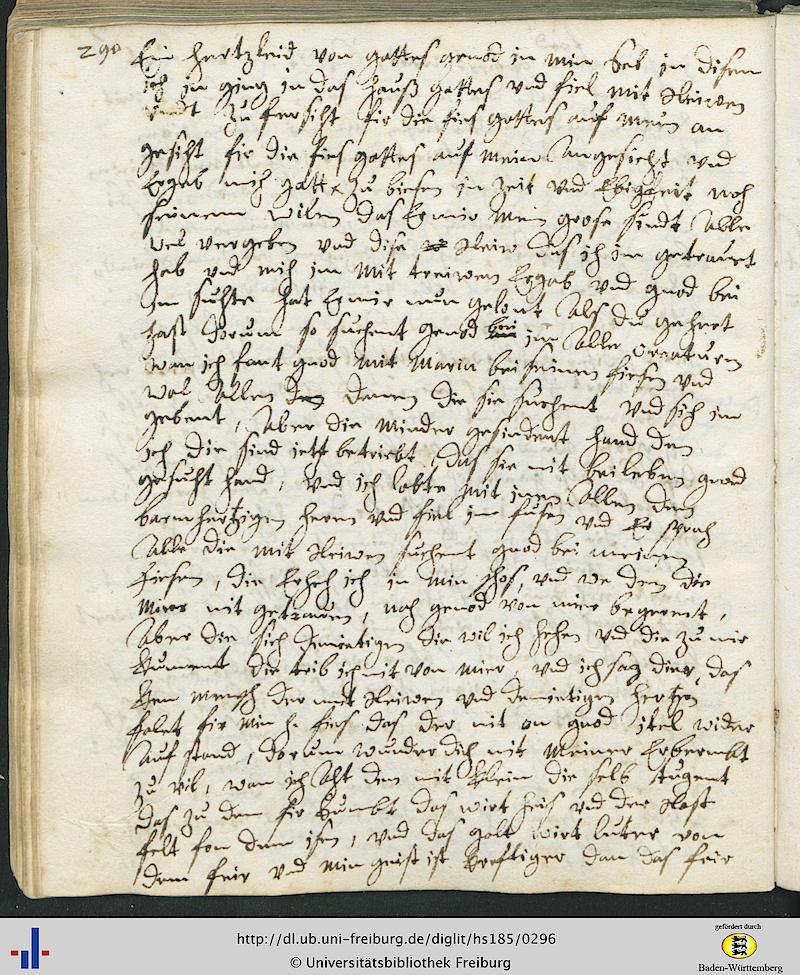 290
Ein hertzleid von gottes genod in min hel in disem
ich in ging in das hauß gottes vnd fiel mit Reiwen
vnd zu fersicht fir die fies gottes auf mein an
gesicht fir die fies gottes auf mein Angesicht vnd
Ergab mich gott zu biesen in zeit vnd Ebigkeit noch
seinem wilen das Er mir mein grose sindt Alle
wel vergeben vnd dise Reiw das ich im getrauwt
hab vnd mich im mit treiwen Ergab vnd gnod bei
im suchte hat Er mir nun gelont Als du gehert
hast dorum so suchent genod bei im Alle Creaturen
wan ich fant gnod mit Maria bei seinen fiesen vnd
wol Allen denen die sie suchent vnd sich im
gebent, Aber die minder gesindent hand den
ich die sind jetz betriebt, das sie nit bei leben gnod
gesucht hand, vnd ich lobte mit inen Allen den
barmhertzigen heren vnd fiel im fusen vnd Er sprach
Alle die mit Reiwen suchent gnod bei meinen
fiesen, die Erheb ich in min schos, vnd we den die
mier nit getrauwen, noch genod von mier begerent,
Aber die sich demietigen die wil ich hehen vnd die zu mir
kument die treib ich nit von mier, vnd ich sag dier, das
kein mensch der mit Reiwen vnd demietigen hertzen
falet fir min h. fies das der nit on gnod itel wider
Auf stand, dorum wunder dich nit meiner Erbermbt
zu vil, wan ich Acht den nit klein die selb tugent
das zu dem fir kumbt das wirt heis vnd der Rost
felt fon dem isen, vnd das golt wirt luter von
dem feir vnd min geist ist kreftiger dan das feir
http://dl.ub.uni-freiburg.de/diglit/hs185/0296
© Universitätsbibliothek Freiburg
gefördert durch
Baden-Württemberg